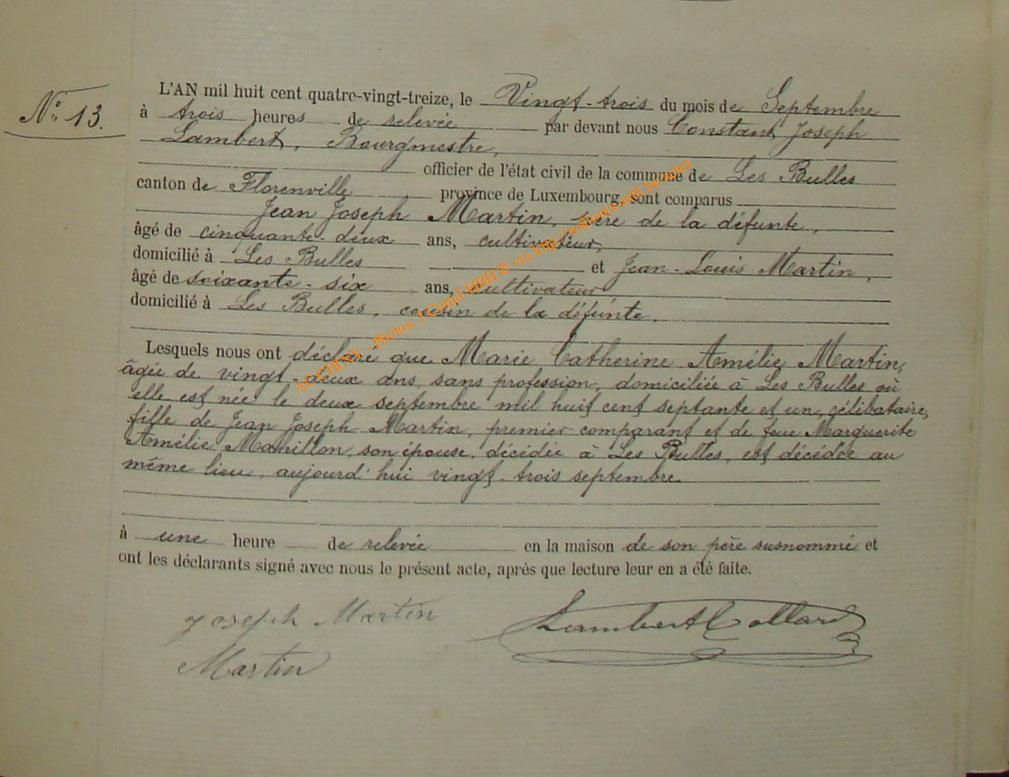 N° 13.
L'AN mil huit cent quatre-vingt-treize, le Vingt-trois du mois de Septembre
à trois heures de relevée par devant nous Constant Joseph
Lambert, Bourgmestre,
officier de l'état civil de la commune de Les Bulles
canton de Florenville province de Luxembourg, sont comparus
Jean Joseph Martin, père de la défunte,
âgé de cinquante-deux ans, cultivateur,
domicilié à Les Bulles et Jean-Louis Martin,
âgé de soixante-six ans, cultivateur
domicilié à Les Bulles, cousin de la défunte.
Lesquels nous ont déclaré que Marie Catherine Amélie Martin,
âgée de vingt-deux ans, sans profession, domiciliée à Les Bulles où
elle est née le deux septembre mil huit cent septante et un, célibataire,
fille de Jean Joseph Martin, premier comparant et de feue Marguerite
Amélie Manillon, son épouse, décédée à Les Bulles, est décédée au
même lieu, aujourd'hui vingt-trois septembre
à une heure de relevée en la maison de son père susnommé et
ont les déclarants signé avec nous le présent acte, après que lecture leur en a été faite.
Joseph Martin
Lambert Collard
Martin